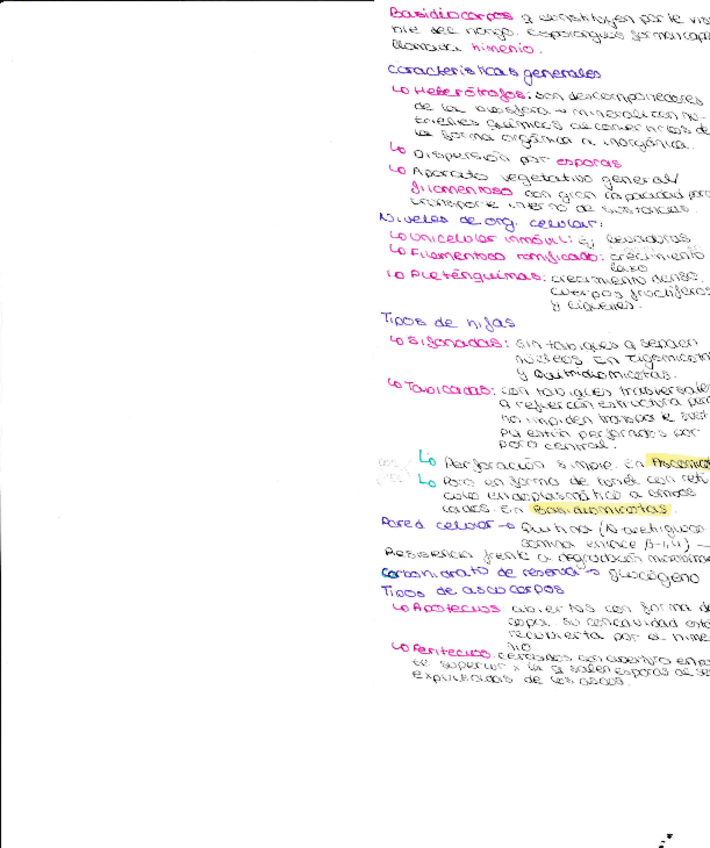 Basidiocarpos q constituyen parte vis
nte del hongo. esporangios forman capa
llamada himenio.
Características generales
↳ Heterótrofos: son descomponedores
de la biosfera → mineralizan nu-
trientes químicos al convertirlos de
la forma orgánica a inorgánica.
↳ Dispersión por esporas
↳ Aparato vegetativo general/
filamentoso con gran capacidad para
transporte interno de sustancias.
Niveles de org. celular:
↳ Unicelular inmóvil: Ej levaduras
↳ Filamentoso ramificado: crecimiento
laxo
↳ Pletênquimas: crecimiento denso.
cuerpos fructíferos
y
Tipos de hifas
↳ Sifonadas: sin tabiques q separen
núcleos En zigomicot
y Quitridiomicotas.
↳ Tabicadas: con tabiques trasversales
q refuerzan estructura pero
no impiden transporte sust
pq están perforados por
poro central.
↳ Perforación simple. En Ascomicot
↳ Poro en forma de tonel con retí
culo endoplasmático a ambos
lados. En Basidiomicotas.
Pared celular → Quitina (N-acetilgluco
samina enlace β-1,4) →
Resistencia frente a degradación microbiana
Carbohidrato de reserva → glucógeno
Tipos de ascocarpos
↳ Apotecios abiertos con forma de
copa. su concavidad está
recubierta por el hime
nio
↳ Peritecios. cerrados con apertura en pa
te superior x la q salen esporas al ser
expulsadas de los ascos.